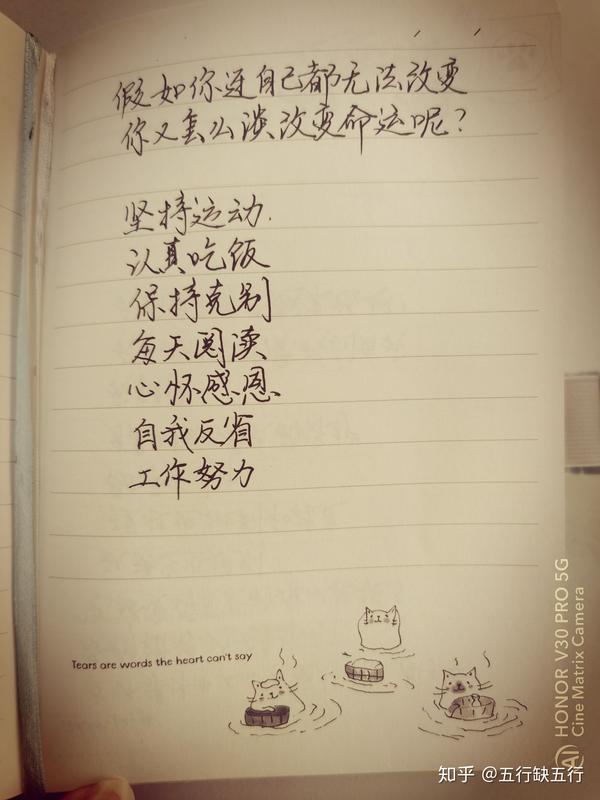 假如你连自己都无法改变
你又怎么谈改变命运呢?
坚持运动.
认真吃饭
保持克制
每天阅读
心怀感恩
自我反省
工作努力
Tears are words the heart can't say
HONOR V30 PRO 5G
Cine Matrix Camera
AI
知乎 @五行缺五行